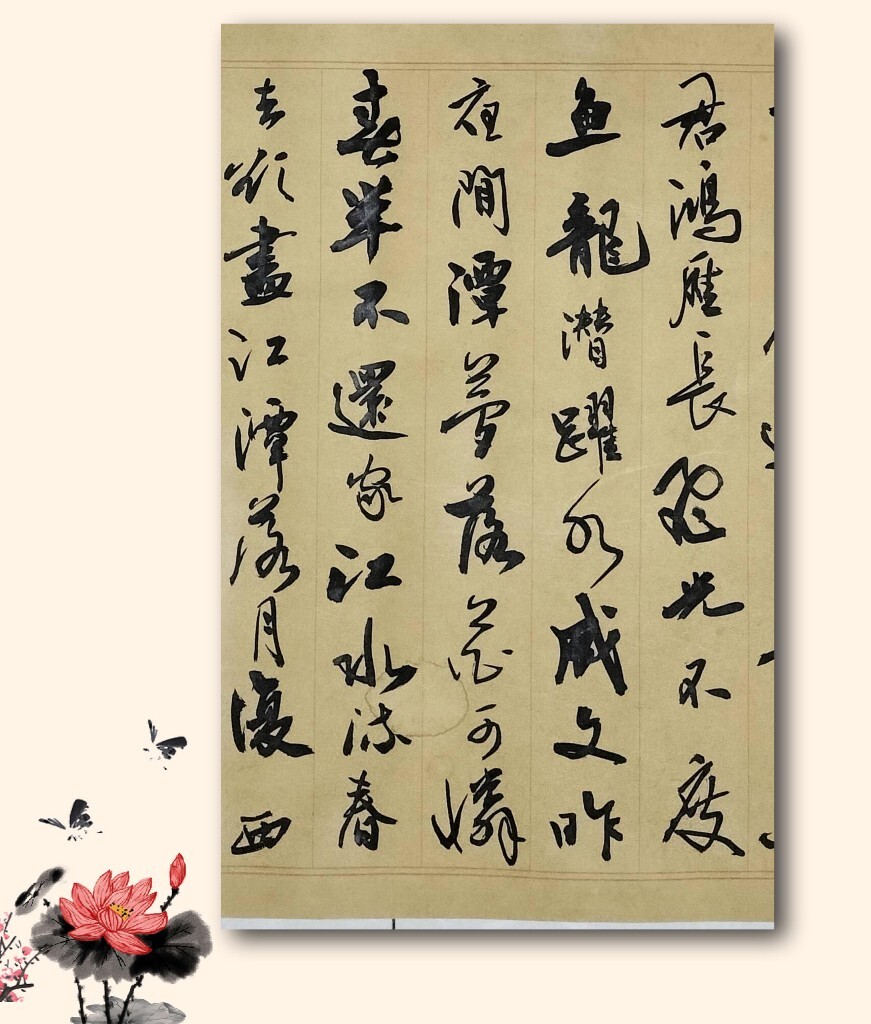 君鴻雁長飛光不度
鱼龍潜躍水成文昨
夜間潭夢落花可憐
春半不還家江水流春
去欲盡江潭落月復西